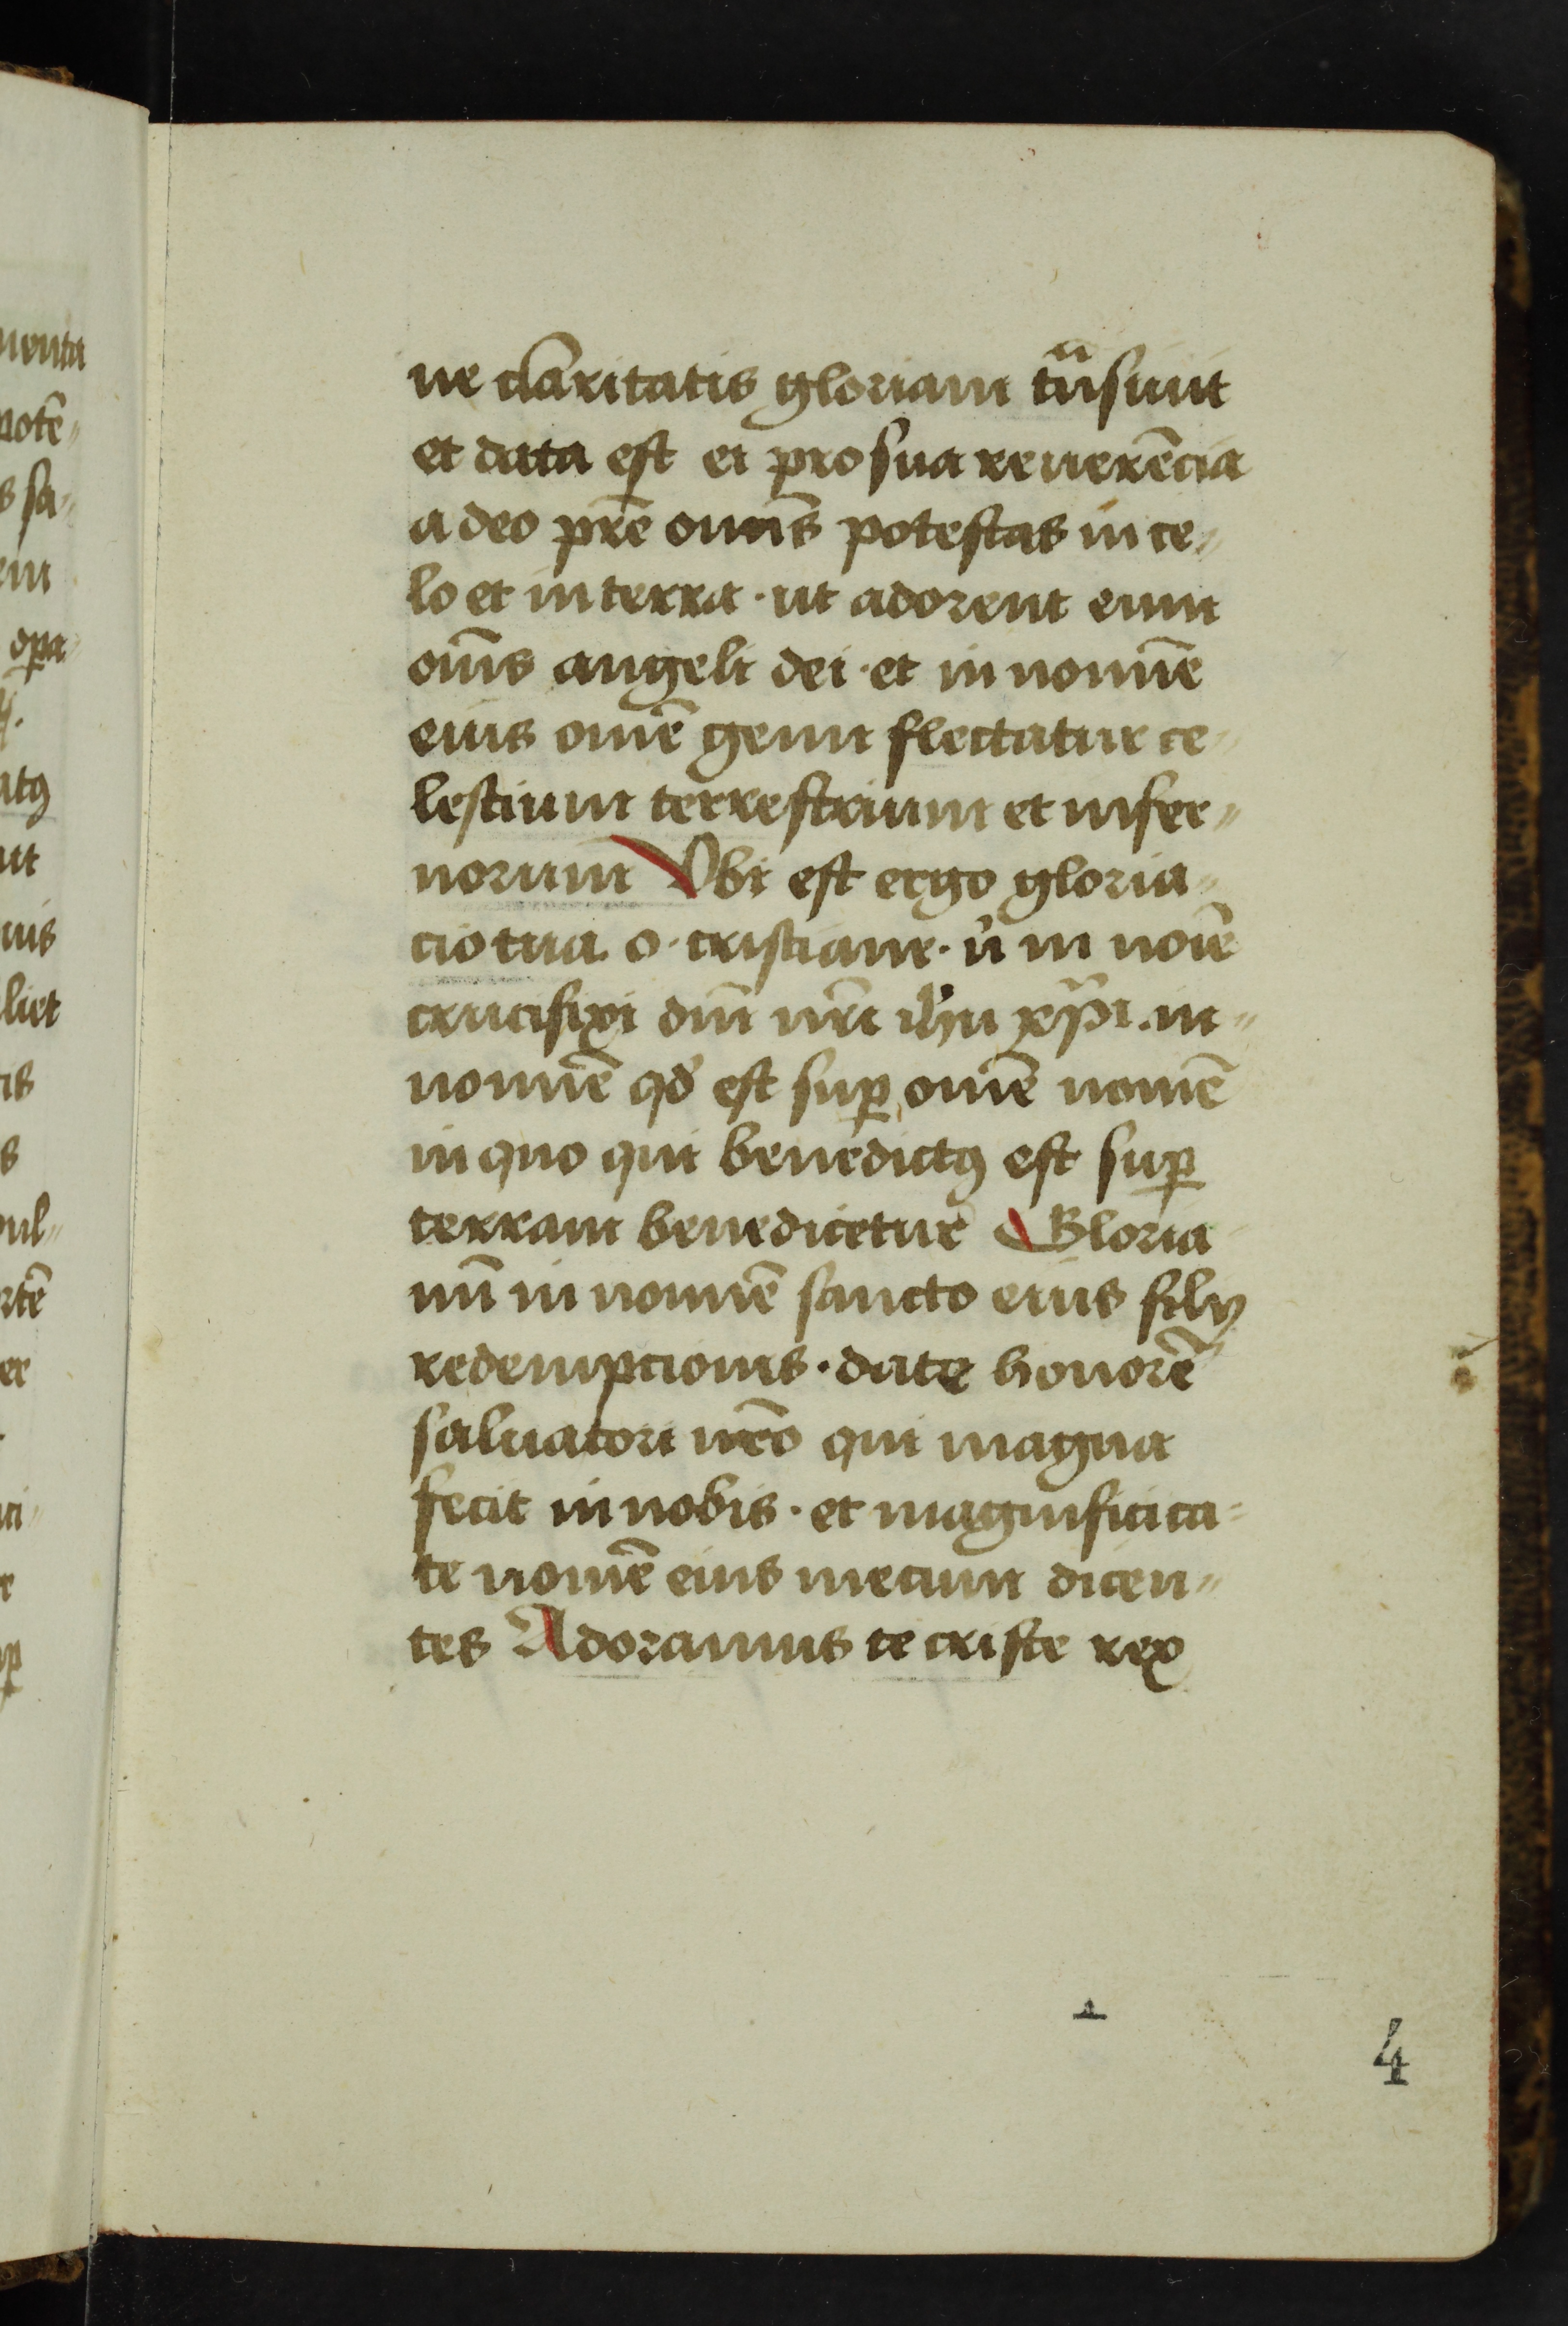 ne claritatis gloriam tⁿⁿsiuit
et data est ei pro sua reuerēcia
a deo pr̄e om̄is potestas in ce„
lo et in terra · ut adorent eum
om̄s angeli dei · et in nomīe
eius om̄e genu flectatur ce„
lestium terrestrium et infer„
norum Vbi est ergo gloria„
cio tua o · cristiane · n̉ in noīe
crucifixi dn̄i nr̄i ih̄u xp̄i · in„
nomīe qd̕ est suꝑ om̄e nomē
in quo qui benedictꝯ est suꝑ
terram benedicetur Gloria
mī in nomīe sancto eius filij
redempcionis · date honorē
saluatori nr̄o qui magna
fecit in nobis · et magnificica„
te nomē eius mecum dicen„
tes Adoramus te criste rex
4